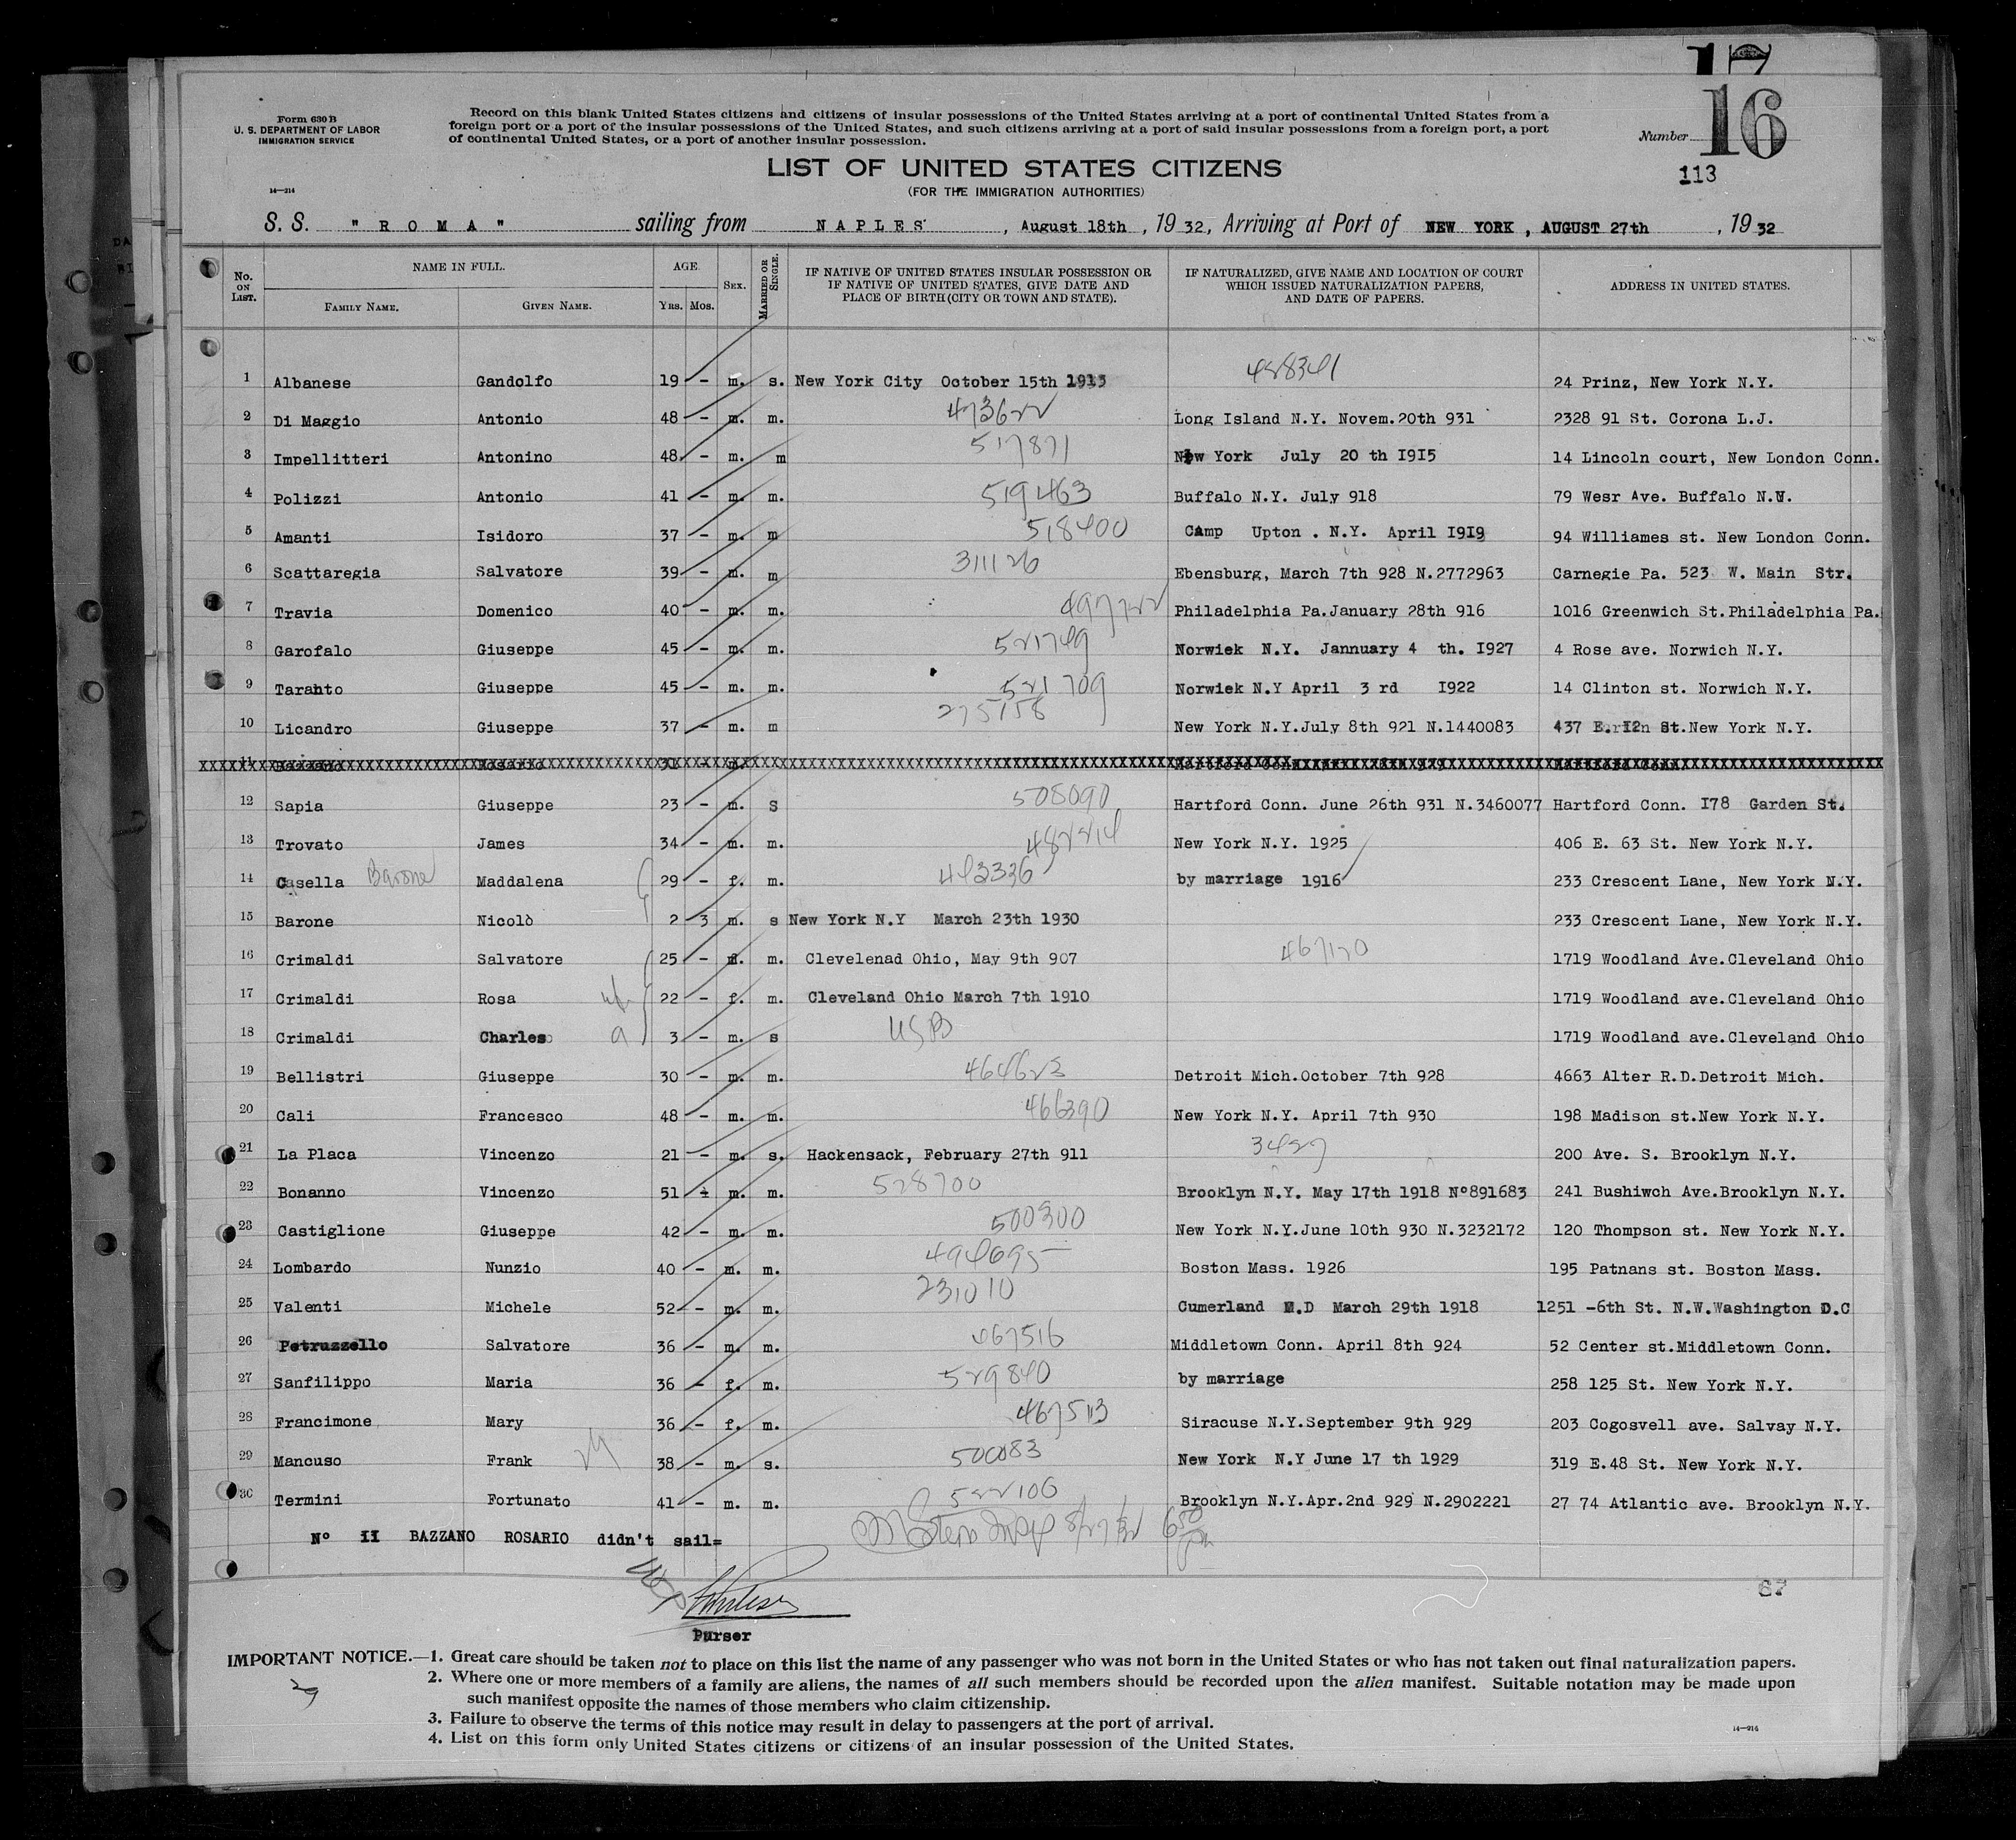 17
16
Form 630 B
U. S. DEPARTMENT OF LABOR
IMMIGRATION SERVICE
14—214
Record on this blank United States citizens and citizens of insular possessions of the United States arriving at a port of continental United States from a
foreign port or a port of the insular possessions of the United States, and such citizens arriving at a port of said insular possessions from a foreign port, a port
of continental United States, or a port of another insular possession.
Number
113
LIST OF UNITED STATES CITIZENS
(FOR THE IMMIGRATION AUTHORITIES)
S. S. " R O M A " sailing from N A P L E S , August 18th , 19 32, Arriving at Port of NEW YORK , AUGUST 27th , 19 32
No. ON LIST. NAME IN FULL. FAMILY NAME. GIVEN NAME. AGE. YRS. MOS. SEX. MARRIED OR SINGLE. IF NATIVE OF UNITED STATES INSULAR POSSESSION OR IF NATIVE OF UNITED STATES, GIVE DATE AND PLACE OF BIRTH (CITY OR TOWN AND STATE). IF NATURALIZED, GIVE NAME AND LOCATION OF COURT WHICH ISSUED NATURALIZATION PAPERS, AND DATE OF PAPERS. ADDRESS IN UNITED STATES.
1 Albanese Gandolfo 19 - m. s. New York City October 15th 1913 488341 24 Prinz, New York N.Y.
2 Di Maggio Antonio 48 - m. m. 473622 Long Island N.Y. Novem.20th 931 2328 91 St. Corona L.J.
3 Impellitteri Antonino 48 - m. m 517871 New York July 20 th I9I5 14 Lincoln court, New London Conn.
4 Polizzi Antonio 41 - m. m. 519463 Buffalo N.Y. July 918 79 Wesr Ave. Buffalo N.Y.
5 Amanti Isidoro 37 - m. m 518400 CAmp Upton . N.Y. April I9I9 94 Williames st. New London Conn.
6 Scattaregia Salvatore 39 - m. m 311126 Ebensburg, March 7th 928 N.2772963 Carnegie Pa. 523 W. Main Str.
7 Travia Domenico 40 - m. m. 497722 Philadelphia Pa.January 28th 916 1016 Greenwich St.Philadelphia Pa.
8 Garofalo Giuseppe 45 - m. m. 521749 Norwiek N.Y. Jannuary 4 th. I927 4 Rose ave. Norwich N.Y.
9 Taranto Giuseppe 45 - m. m. 521709 Norwiek N.Y April 3 rd I922 14 Clinton st. Norwich N.Y.
10 Licandro Giuseppe 37 - m. m 275158 New York N.Y.July 8th 921 N.1440083 437 E. I2 St.New York N.Y.
11 Bazzano Rosario 31 - m.
12 Sapia Giuseppe 23 - m. s 508090 Hartford Conn. June 26th 931 N.3460077 Hartford Conn. I78 Garden St.
13 Trovato James 34 - m. m. 482214 New York N.Y. 1925 406 E. 63 St. New York N.Y.
14 Casella Barone Maddalena 29 - f. m. 493336 by marriage 1916 233 Crescent Lane, New York N.Y.
15 Barone Nicolò 2 3 m. s New York N.Y March 23th 1930 233 Crescent Lane, New York N.Y.
16 Crimaldi Salvatore 25 - m. m. Clevelenad Ohio, May 9th 907 467120 1719 Woodland Ave.Cleveland Ohio
17 Crimaldi Rosa 22 - f. m. Cleveland Ohio March 7th 1910 1719 Woodland ave.Cleveland Ohio
18 Crimaldi Charles 3 - m. s USB 1719 Woodland ave.Cleveland Ohio
19 Bellistri Giuseppe 30 - m. m. 464623 Detroit Mich.October 7th 928 4663 Alter R.D.Detroit Mich.
20 Cali Francesco 48 - m. m. 466390 New York N.Y. April 7th 930 198 Madison st.New York N.Y.
21 La Placa Vincenzo 21 - m. s. Hackensack, February 27th 911 3427 200 Ave. S. Brooklyn N.Y.
22 Bonanno Vincenzo 51 - m. m. 528700 Brooklyn N.Y. May 17th 1918 Nº891683 241 Bushiwch Ave.Brooklyn N.Y.
23 Castiglione Giuseppe 42 - m. m. 500300 New York N.Y.June 10th 930 N.3232172 120 Thompson st. New York N.Y.
24 Lombardo Nunzio 40 - m. m. 494695 Boston Mass. 1926 195 Patnans st. Boston Mass.
25 Valenti Michele 52 - m. m. 231010 Cumerland M.D March 29th 1918 1251 -6th St. N.W.Washington D.C
26 Petruzzello Salvatore 36 - m. m. 467516 Middletown Conn. April 8th 924 52 Center st.Middletown Conn.
27 Sanfilippo Maria 36 - f. m. 529840 by marriage 258 125 St. New York N.Y.
28 Francimone Mary 36 - f. m. 467513 Siracuse N.Y.September 9th 929 203 Cogosvell ave. Salvay N.Y.
29 Mancuso Frank 38 - m. s. 500083 New York N.Y June 17 th 1929 319 E.48 St. New York N.Y.
30 Termini Fortunato 41 - m. m. 522106 Brooklyn N.Y.Apr.2nd 929 N.2902221 27 74 Atlantic ave. Brooklyn N.Y.
Nº II BAZZANO ROSARIO didn't sail=
8/27/32
67
Purser
IMPORTANT NOTICE.—1. Great care should be taken not to place on this list the name of any passenger who was not born in the United States or who has not taken out final naturalization papers.
2. Where one or more members of a family are aliens, the names of all such members should be recorded upon the alien manifest. Suitable notation may be made upon
such manifest opposite the names of those members who claim citizenship.
3. Failure to observe the terms of this notice may result in delay to passengers at the port of arrival.
4. List on this form only United States citizens or citizens of an insular possession of the United States.
29
14—214